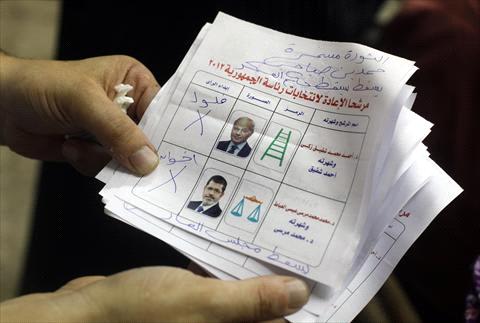 الثورة مستمرة
حمدين صباحي
يسقط يسقط حكم العسكر
مرشحا الإعادة لانتخابات رئاسة الجمهورية ٢٠١٢
اسم المرشح وشهرته
الرمز
الصورة
إبداء الرأى
د. أحمد محمد شفيق زكى
وشهرته
أحمد شفيق
فلول
X
د. محمد محمد مرسى عيسى العياط
وشهرته
د. محمد مرسى
إخوان
X
يسقط مجلس العار